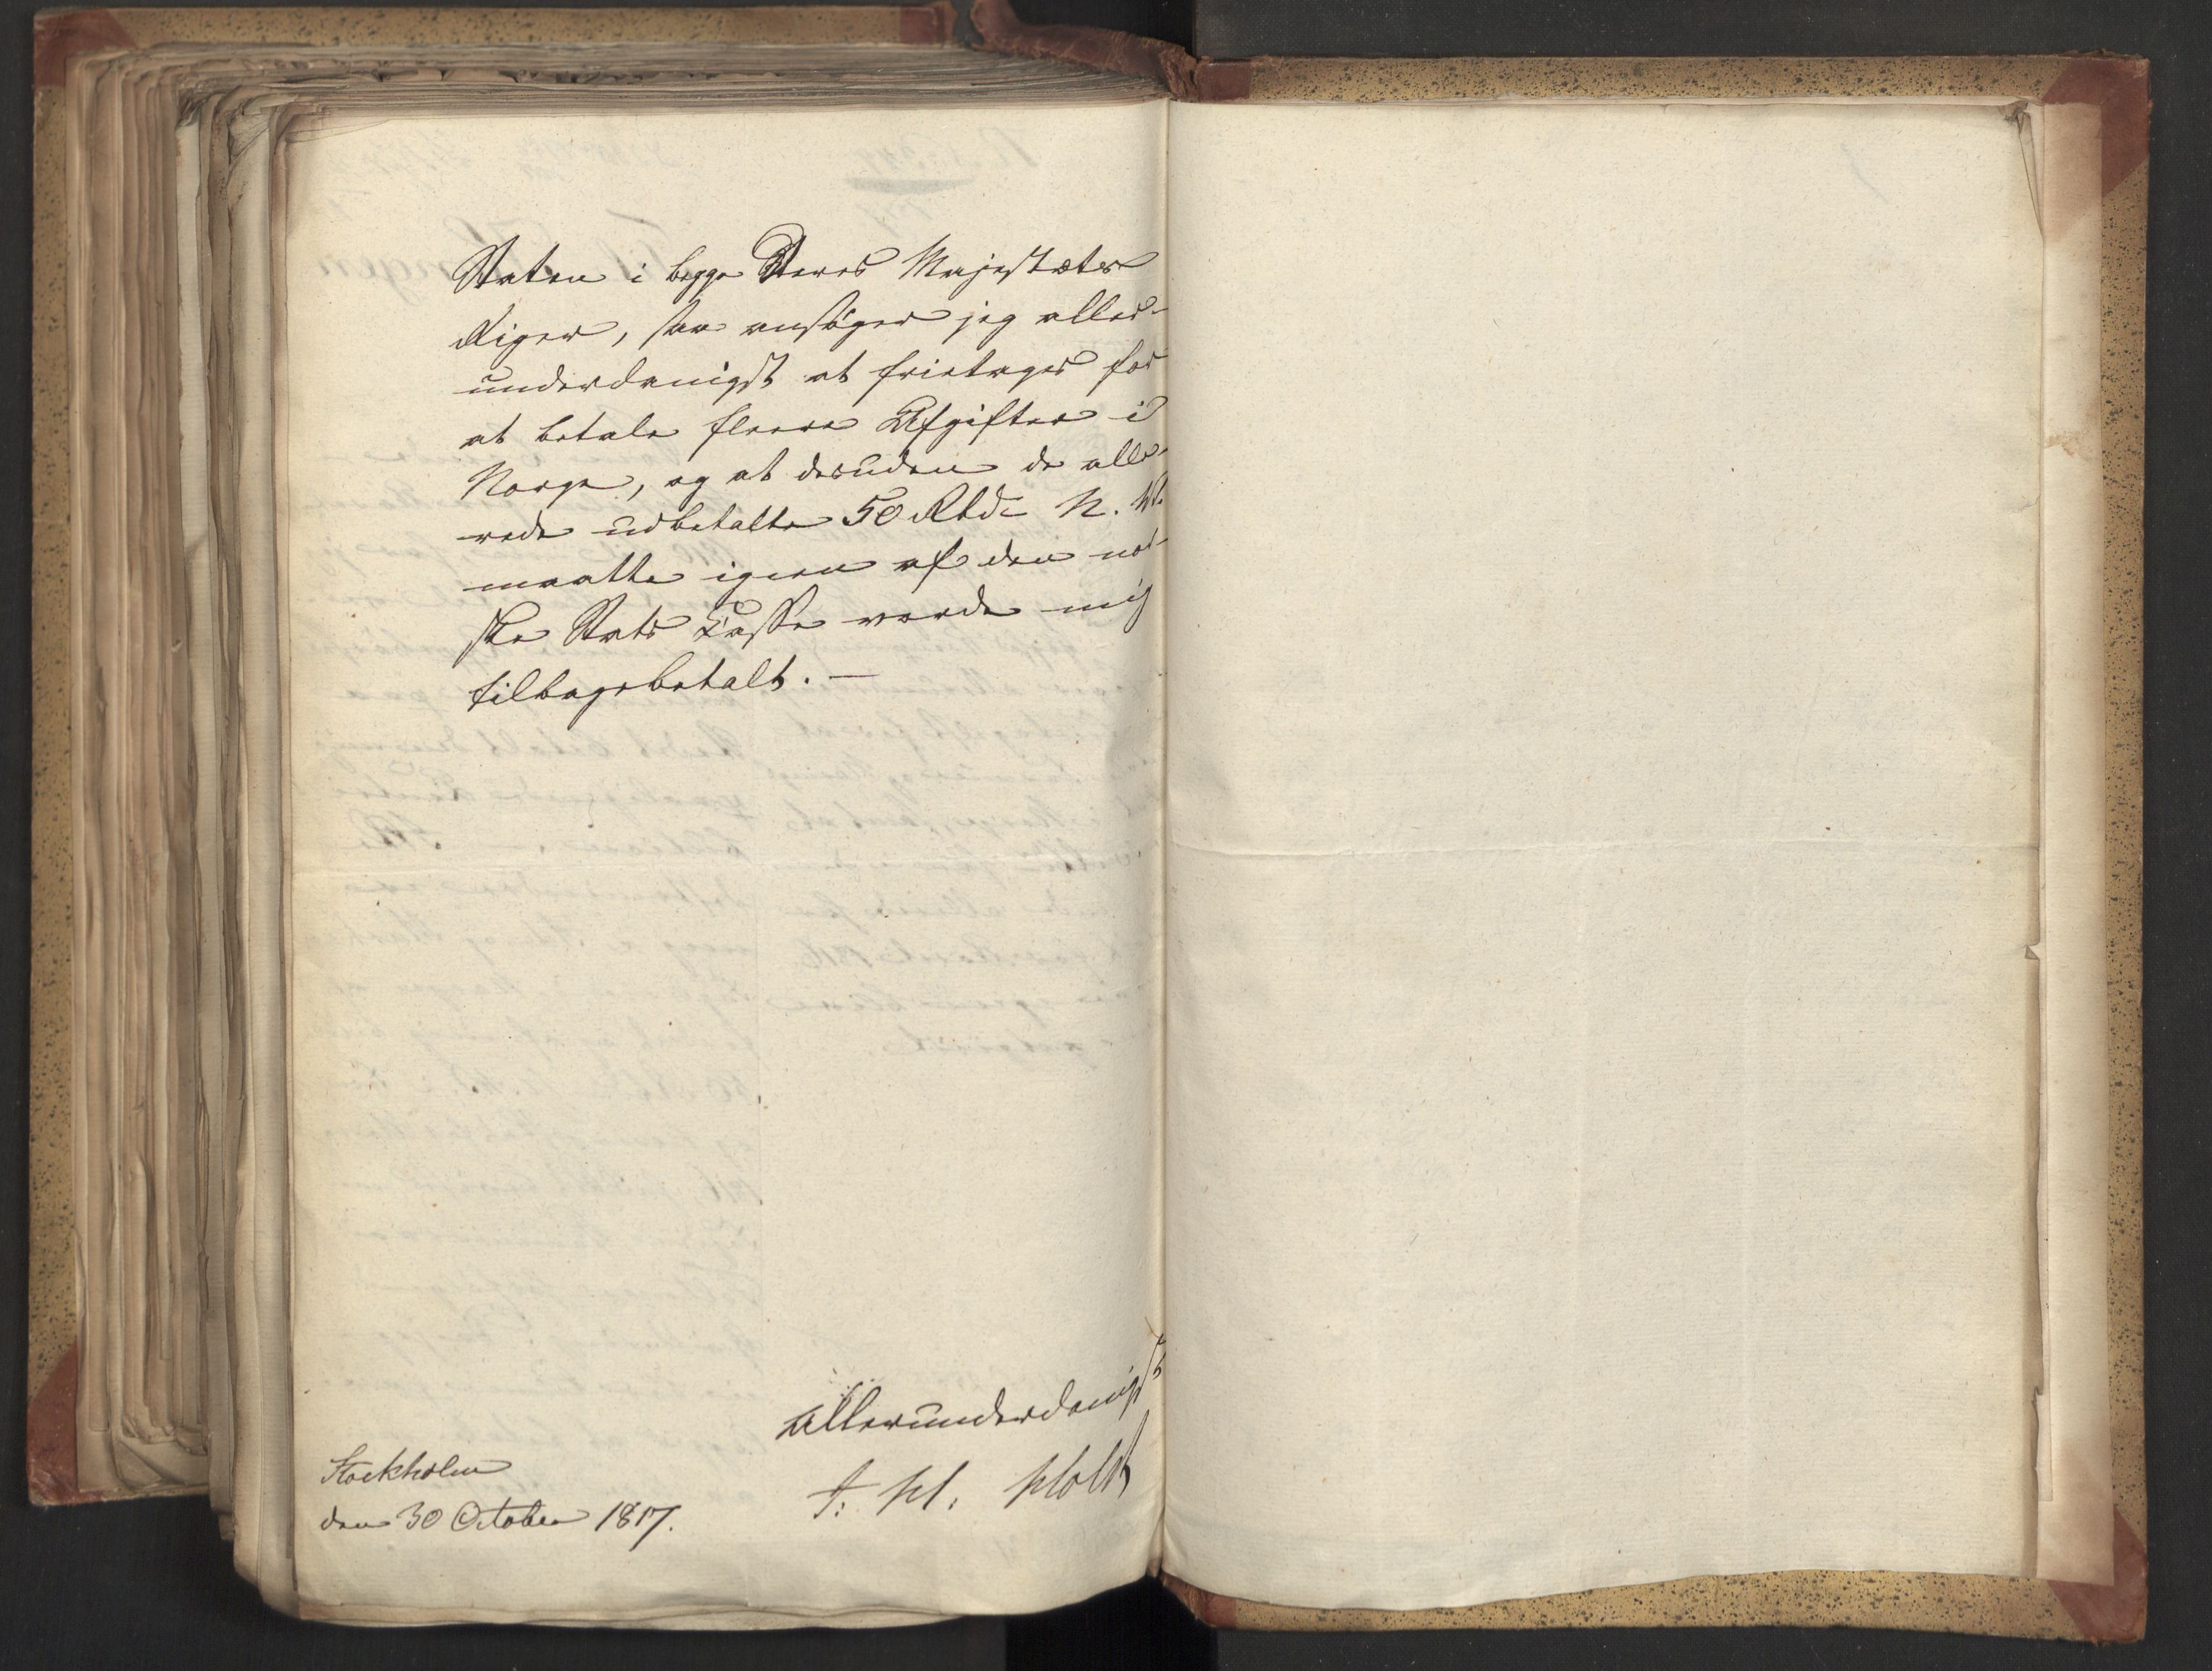 Staten i begge Deres Majestæts
Riger, saa ansøger jeg aller-
underdanigst at frietages for
at betale fleere Afgifter i
Norge, og at desuden de alle-
rede udbetalte 50 Rbd. N. V.
maatte igien af den nor-
ske Stats Casse vorde mig
tilbagebetalt. —
Allerunderdanigst
Stockholm
den 30 October 1817.
P: H: Holst